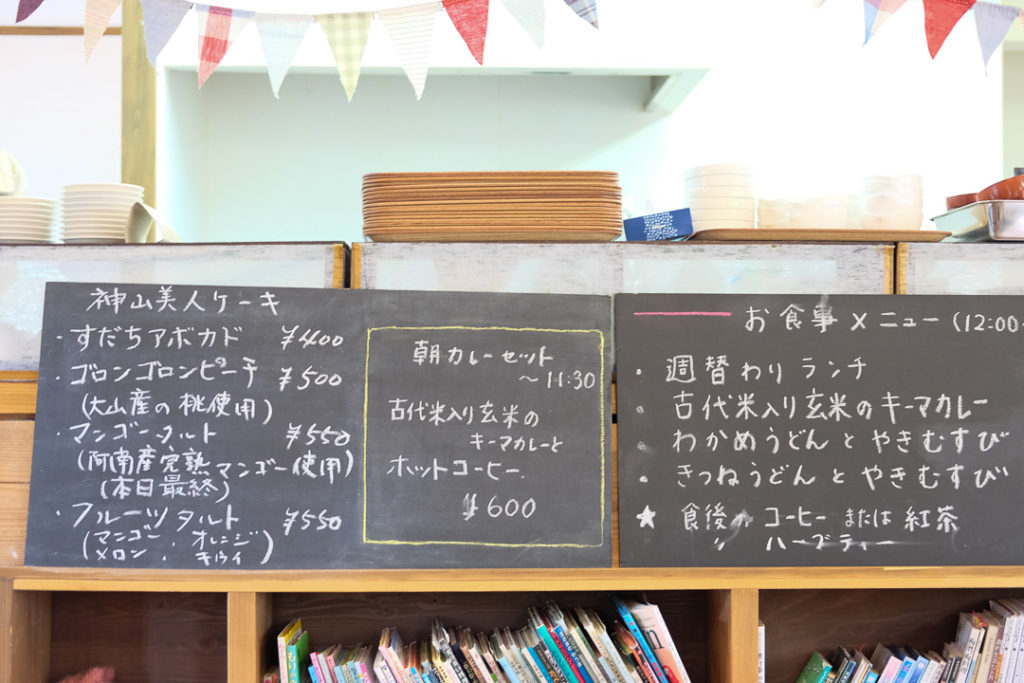 神山美人ケーキ
・すだちアボカド ¥400
・ゴロンゴロンピーチ ¥500
(大山産の桃使用)
・マンゴータルト ¥550
(阿南産完熟マンゴー使用)
(本日最終)
・フルーツタルト ¥550
(マンゴー、オレンジ
メロン、キウイ)
朝カレーセット
～11:30
古代米入り玄米の
キーマカレーと
ホットコーヒー.
¥600
お食事メニュー (12:00
・週替わりランチ
・古代米入り玄米のキーマカレー
・わかめうどんとやきむすび
・きつねうどんとやきむすび
★食後 コーヒーまたは紅茶
〃 ハーブティー